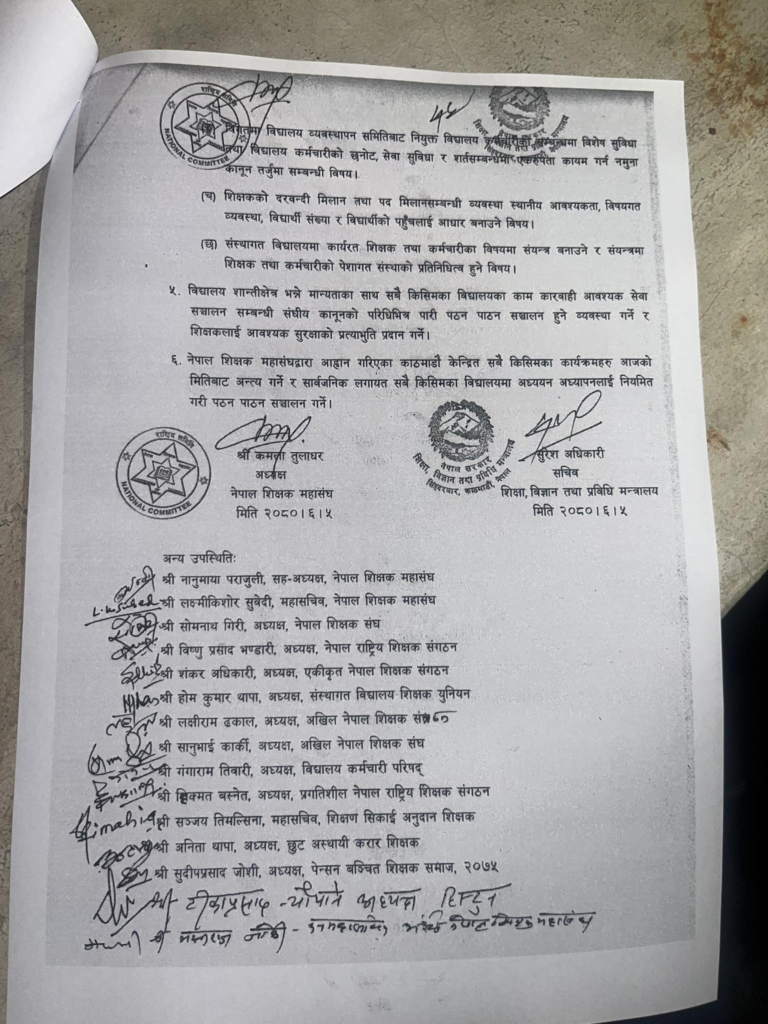 राष्ट्रिय समिति
NATIONAL COMMITTEE
विगतमा विद्यालय व्यवस्थापन समितिबाट नियुक्त विद्यालय कर्मचारीको सम्बन्धमा विशेष सुविधा
तथा विद्यालय कर्मचारीको छनोट, सेवा सुविधा र शर्तसम्बन्धमा एकरुपता कायम गर्न नमुना
कानून तर्जुमा सम्बन्धी विषय।
(च) शिक्षकको दरबन्दी मिलान तथा पद मिलानसम्बन्धी व्यवस्था स्थानीय आवश्यकता, विषयगत
व्यवस्था, विद्यार्थी संख्या र विद्यार्थीको पहुँचलाई आधार बनाउने विषय।
(छ) संस्थागत विद्यालयमा कार्यरत शिक्षक तथा कर्मचारीका विषयमा संयन्त्र बनाउने र संयन्त्रमा
शिक्षक तथा कर्मचारीको पेशागत संस्थाको प्रतिनिधित्व हुने विषय।
५. विद्यालय शान्तीक्षेत्र भन्ने मान्यताका साथ सबै किसिमका विद्यालयका काम कारवाही आवश्यक सेवा
सञ्चालन सम्बन्धी संघीय कानूनको परिधिभित्र पारी पठन पाठन सञ्चालन हुने व्यवस्था गर्ने र
शिक्षकलाई आवश्यक सुरक्षाको प्रत्याभुति प्रदान गर्ने।
६. नेपाल शिक्षक महासंघद्वारा आह्वान गरिएका काठमाडौ केन्द्रित सबै किसिमका कार्यक्रमहरु आजको
मितिबाट अन्त्य गर्ने र सार्वजनिक लगायत सबै किसिमका विद्यालयमा अध्ययन अध्यापनलाई नियमित
गरी पठन पाठन सञ्चालन गर्ने।
राष्ट्रिय समिति
NATIONAL COMMITTEE
श्री कमला तुलाधर
अध्यक्ष
नेपाल शिक्षक महासंघ
मिति २०८०।६।५
नेपाल सरकार
शिक्षा, विज्ञान तथा प्रविधि मन्त्रालय
सिंहदरबार, काठमाडौं, नेपाल
सुरेश अधिकारी
सचिव
शिक्षा, विज्ञान तथा प्रविधि मन्त्रालय
मिति २०८०।६।५
अन्य उपस्थितिः
श्री नानुमाया पराजुली, सह-अध्यक्ष, नेपाल शिक्षक महासंघ
श्री लक्ष्मीकिशोर सुवेदी, महासचिव, नेपाल शिक्षक महासंघ
श्री सोमनाथ गिरी, अध्यक्ष, नेपाल शिक्षक संघ
श्री विष्णु प्रसाद भण्डारी, अध्यक्ष, नेपाल राष्ट्रिय शिक्षक संगठन
श्री शंकर अधिकारी, अध्यक्ष, एकीकृत नेपाल शिक्षक संगठन
श्री होम कुमार थापा, अध्यक्ष, संस्थागत विद्यालय शिक्षक युनियन
श्री लक्षीराम ढकाल, अध्यक्ष, अखिल नेपाल शिक्षक
श्री सानुभाई कार्की, अध्यक्ष, अखिल नेपाल शिक्षक संघ
श्री गंगाराम तिवारी, अध्यक्ष, विद्यालय कर्मचारी परिषद्
श्री हिक्मत बस्नेत, अध्यक्ष, प्रगतिशील नेपाल राष्ट्रिय शिक्षक संगठन
श्री सञ्जय तिमल्सिना, महासचिव, शिक्षण सिकाई अनुदान शिक्षक
श्री अनिता थापा, अध्यक्ष, छुट अस्थायी करार शिक्षक
श्री सुदीपप्रसाद जोशी, अध्यक्ष, पेन्सन बञ्चित शिक्षक समाज, २०७५
श्री टीकाप्रसाद अध्यक्ष